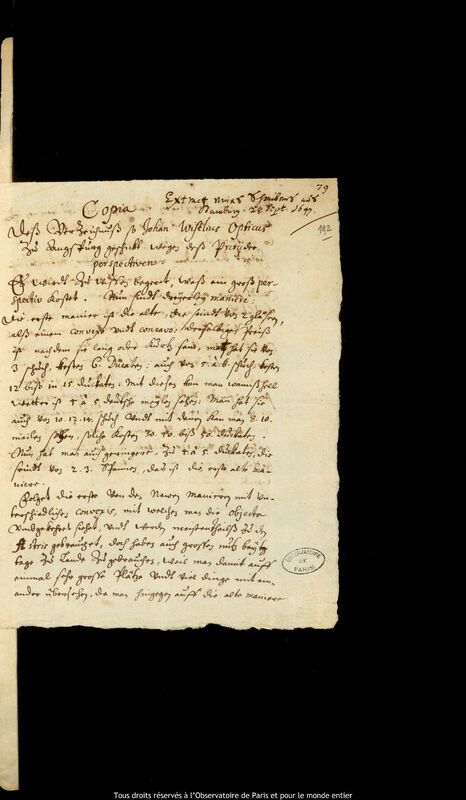 79
Extract eines Schreibens aus
Hamburg. 28 Sept. 1647.
192
Copia
Daß Verzeichnuß so Johan Wiselius Opticus
Zu Augspurg geschickt wegen deß Precij der
perspectiven
Es wirdt zu wissen begert, waß ein groß per-
spectiv kostet. Nun sindt dreyerley manier:
Die erste manier ist die alte, die sindt von 2 glesern,
alß einem convexo undt concavo; derselbigen Preiß
ist nachdem sie lang oder kurtz sind, man hat sie von
3 schuch, kosten 6. Ducaten: auch von 5 a 6. schuch kosten
12 biß in 15 dukaten: Mit diesen kan man wanns hell
wetter ist 4 a 5 deutsche meylen sehen: Man hat sie
auch von 10. 12. 14. schuch Undt mit denen kan man 8. 10.
meilen sehen, solche kosten 30. 40. biß 50. dukaten.
Nun hat man auch geringere, zu 4 a 5 dukaten, die
sindt von 2. 3. Spannen, das ist die erste alte ma-
niere.
Folget die erste von den Newen manieren mit un-
terschiedlichen convexis, mit welchen man die objecta
umbgekehrt siehet, undt werden meistentheilß zu den
Astris gebrauchet, doch haben auch grossen nutz bey
tage zu Lande zu gebrauchen, weil man damit auff
einmal sehr grosse Plätze undt viel dinge mit ein-
ander übersehen, da man hingegen auff die alte maniere
OBSERVATOIRE
DE
PARIS
Tous droits réservés à l'Observatoire de Paris et pour le monde entier